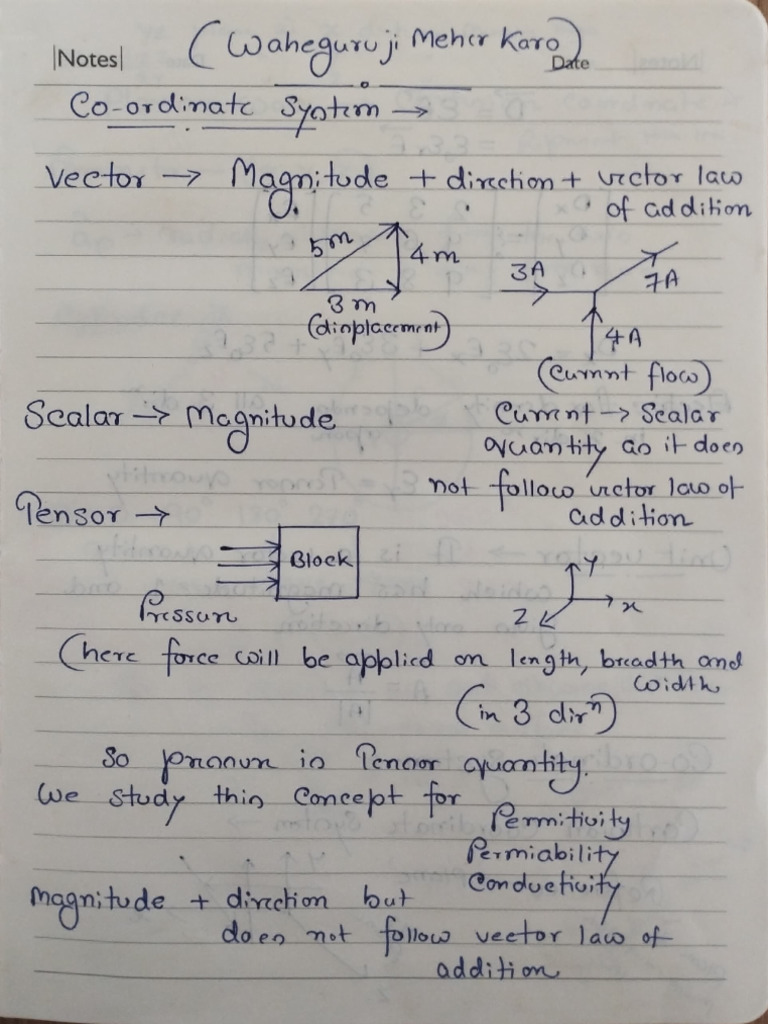 (Waheguru ji Meher Karo)
|Notes|
Date
Co-ordinate System →
Vector → Magnitude + direction + vector law
of addition
5m
4m
3m
(displacement)
3A
7A
4A
(Current flow)
Scalar → Magnitude
Current → Scalar
quantity as it does
not follow vector law of
addition
Tensor →
Block
Pressure
Y
x
Z
(here force will be applied on length, breadth and
width
(in 3 dirⁿ)
So pressure is Tensor quantity.
We study this concept for
Permitivity
Permiability
Conductivity
Magnitude + direction but
does not follow vector law of
addition